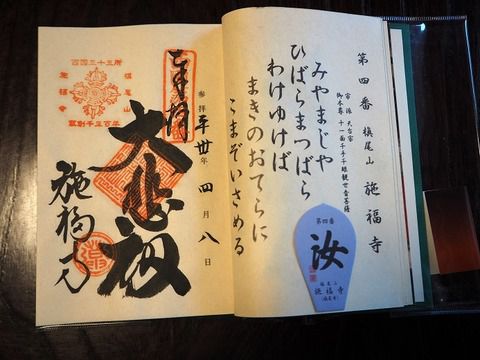 第四番 槇尾山 施福寺
宗派 天台宗
御本尊 十一面千手千眼観世音菩薩
みやまじや
ひばらまつばら
わけゆけば
まきのおてらに
こまぞいさめる
第四番
汝
槇尾山
施福寺
奉拝
参拝 平卅年四月八日
大悲殿
施福寺
西国三十三所
槇尾山
施福寺